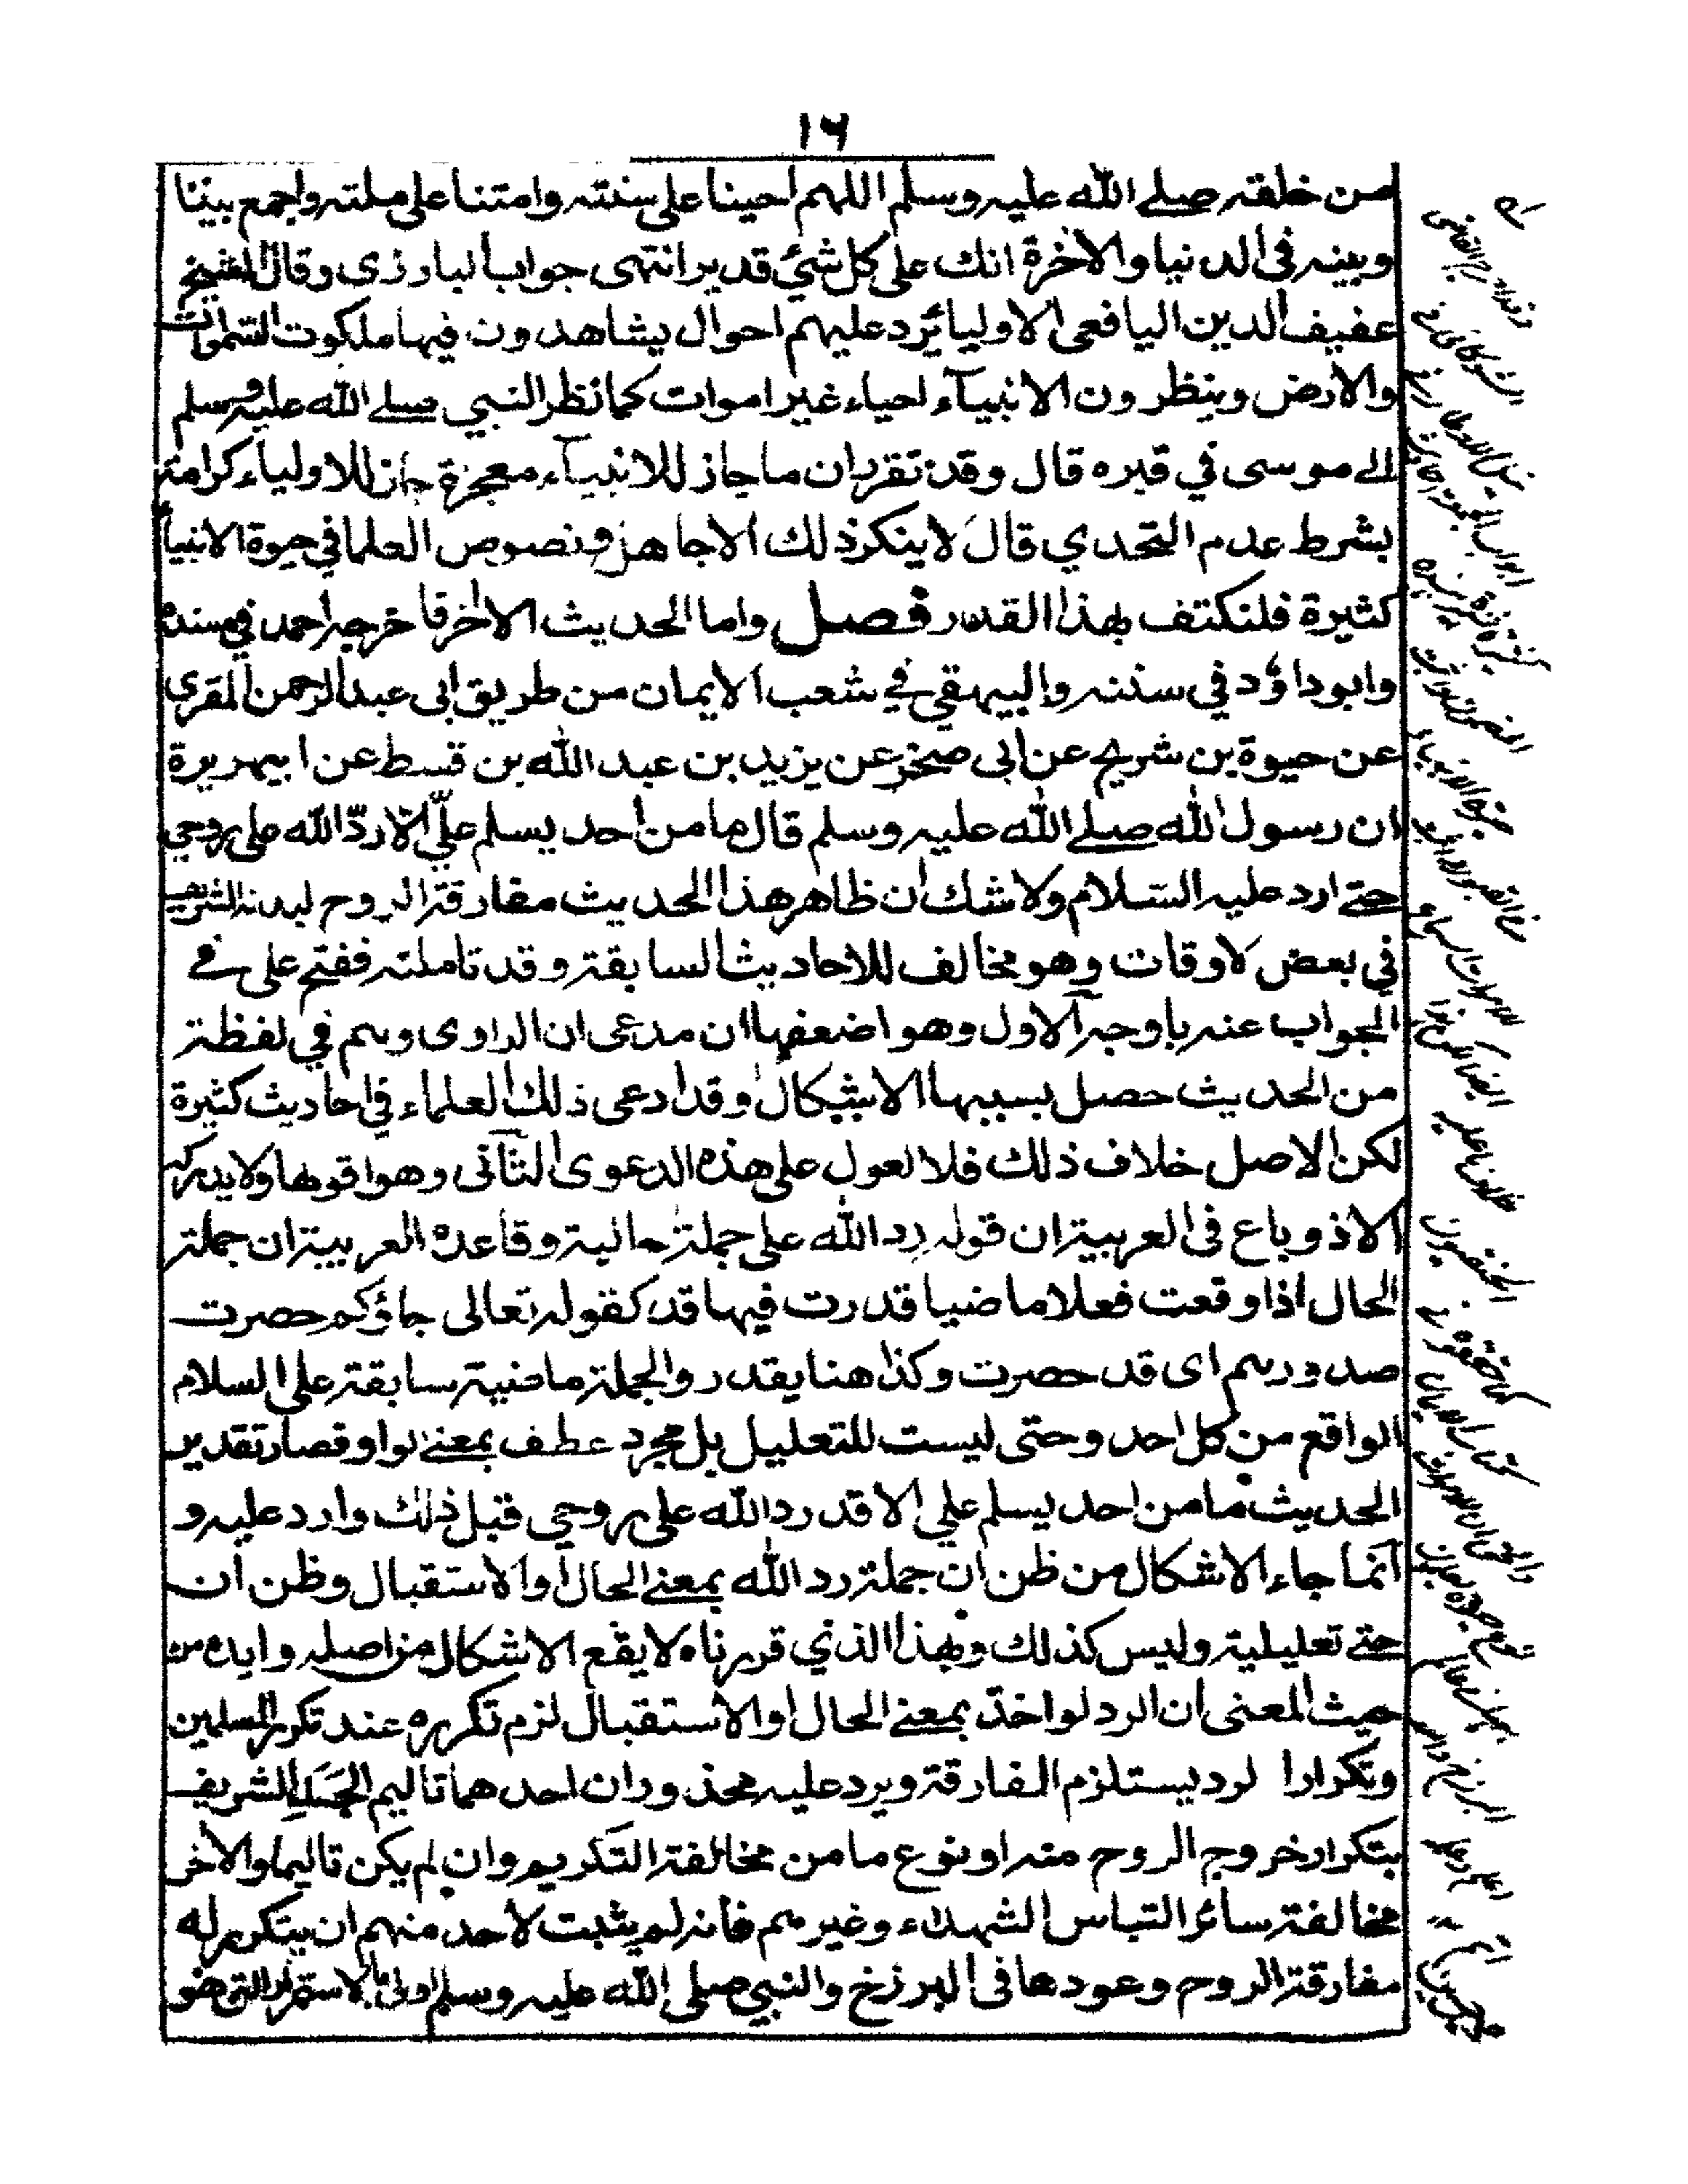 ١٦
من خلقه صلے الله عليه وسلم اللهم احينا على سنته وامتنا على ملته واجمع بيننا
وبينه فى الدنيا والاخرة انك على كل شئ قدير انتهى جواب البارزى وقال الشيخ
عفيف الدين اليافعى الاوليا يرد عليهم احوال يشاهدون فيها ملكوت السموات
والارض وينظرون الانبيآء احياء غير اموات كما نظر النبي صلے الله عليه وسلم
الے موسى في قبره قال وقد تقرر ان ما جاز للانبيآء معجزة جاز للاولياء كرامة
بشرط عدم التحدي قال لا ينكر ذلك الا جاهل ونصوص العلما في حيوة الانبيا
كثيرة فلنكتف بهذا القدر فصل واما الحديث الاخر فاخرجه احمد في مسنده
وابو داؤد في سننه والبيهقي في شعب الايمان من طريق ابى عبد الرحمن المقرى
عن حيوة بن شريح عن ابى صخر عن يزيد بن عبد الله بن قسط عن ابيهريرة
ان رسول الله صلے الله عليه وسلم قال ما من احد يسلم علىّ الا ردّ الله على روحي
حتے ارد عليه السلام ولا شك ان ظاهر هذا الحديث مفارقة الروح لبدنه الشريف
في بعض الاوقات وهو مخالف للاحاديث السابقة وقد تاملته ففتح على في
الجواب عنه باوجه الاول وهو اضعفها ان مدعى ان الراوى وهم في لفظة
من الحديث حصل بسببها الاشكال وقد ادعى ذلك العلماء في احاديث كثيرة
لكن الاصل خلاف ذلك فلا لعول على هذه الدعوى الثانى وهو اقوىها ولا يدركه
الا ذو باع فى العربية ان قوله رد الله على جملة حالية وقاعده العربية ان جملة
الحال اذا وقعت فعلا ماضيا قدرت فيها قد كقوله تعالى جاؤكم حصرت
صدورهم اى قد حصرت وكذا هنا يقدر والجملة ماضية سابقة على السلام
الواقع من كل احد وحتى ليست للتعليل بل مجرد عطف بمعنى الواو فصار تقدير
الحديث ما من احد يسلم علي الا قد رد الله على روحي قبل ذلك وارد عليه و
انما جاء الاشكال من ظن ان جملة رد الله بمعنے الحال او الاستقبال وظن ان
حتے تعليلية وليس كذلك وبهذا الذي قررناه لا يقع الاشكال من اصله وايده من
حيث المعنى ان الرد لو اخذ بمعنے الحال او الاستقبال لزم تكرره عند تكرر المسلمين
وتكرار الرد يستلزم المفارقة ويرد عليه محذوران احدهما تاليم الجسد الشريف
بتكرار خروج الروح منه او نوع ما من مخالفة التكريم وان لم يكن تاليما والاخر
مخالفة سائر الناس الشهداء وغيرهم فانه لم يثبت لاحد منهم ان يتكرر له
مفارقة الروح وعودها فى البرزخ والنبي صلى الله عليه وسلم اولى بالاستمرار التى هو